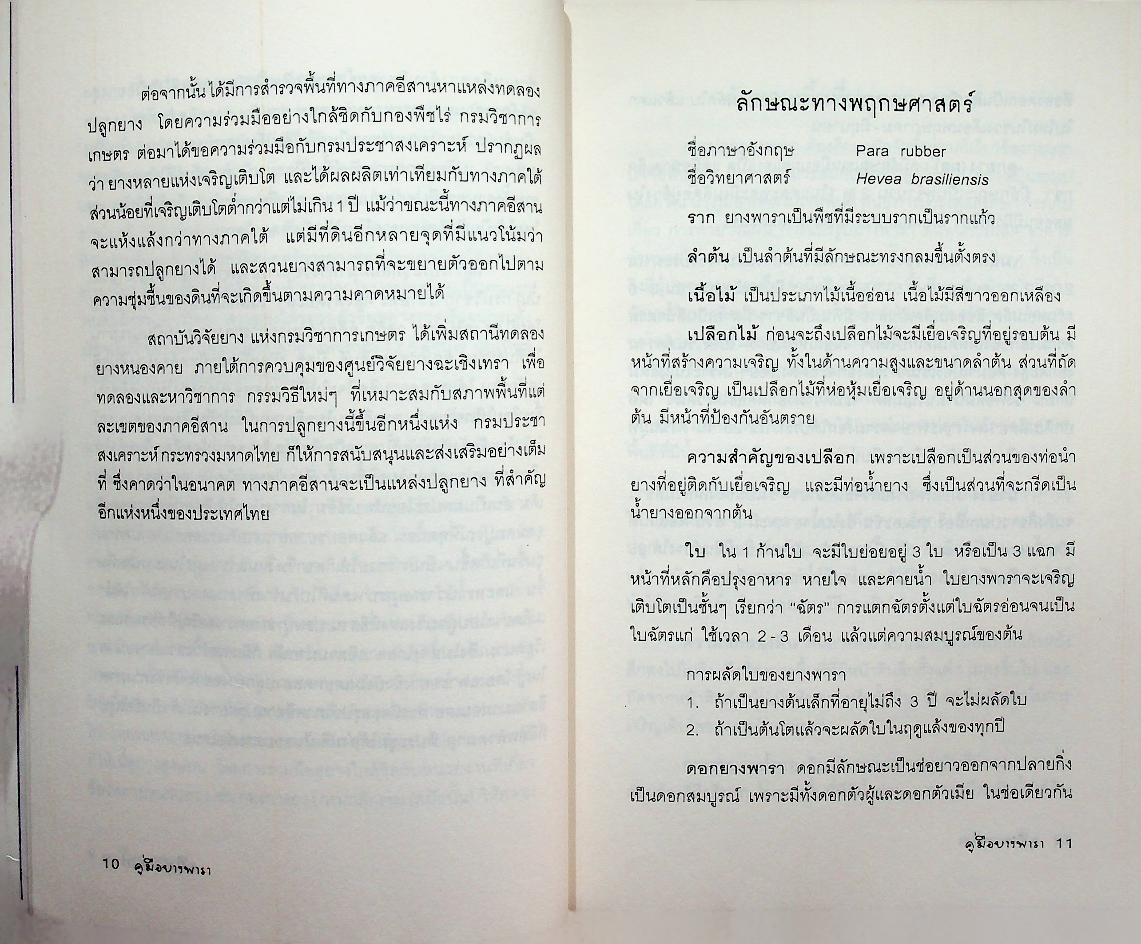 ต่อจากนั้น ได้มีการสำรวจพื้นที่ทางภาคอีสานหาแหล่งทดลอง
ปลูกยาง โดยความร่วมมืออย่างใกล้ชิดกับกองพืชไร่ กรมวิชาการ
เกษตร ต่อมาได้ขอความร่วมมือกับกรมประชาสงเคราะห์ ปรากฏผล
ว่า ยางหลายแห่งเจริญเติบโต และได้ผลผลิตเท่าเทียมกับทางภาคใต้
ส่วนน้อยที่เจริญเติบโตต่ำกว่าแต่ไม่เกิน 1 ปี แม้ว่าขณะนี้ทางภาคอีสาน
จะแห้งแล้งกว่าทางภาคใต้ แต่มีที่ดินอีกหลายจุดที่มีแนวโน้มว่า
สามารถปลูกยางได้ และสวนยางสามารถที่จะขยายตัวออกไปตาม
ความชุ่มชื้นของดินที่จะเกิดขึ้นตามความคาดหมายได้
สถาบันวิจัยยาง แห่งกรมวิชาการเกษตร ได้เพิ่มสถานีทดลอง
ยางหนองคาย ภายใต้การควบคุมของศูนย์วิจัยยางฉะเชิงเทรา เพื่อ
ทดลองและหาวิชาการ กรรมวิธีใหม่ๆ ที่เหมาะสมกับสภาพพื้นที่แต่
ละเขตของภาคอีสาน ในการปลูกยางนี้ขึ้นอีกหนึ่งแห่ง กรมประชา
สงเคราะห์ กระทรวงมหาดไทย ก็ให้การสนับสนุนและส่งเสริมอย่างเต็ม
ที่ ซึ่งคาดว่าในอนาคต ทางภาคอีสานจะเป็นแหล่งปลูกยาง ที่สำคัญ
อีกแห่งหนึ่งของประเทศไทย
10 คู่มือยางพารา
ลักษณะทางพฤกษศาสตร์
ชื่อภาษาอังกฤษ Para rubber
ชื่อวิทยาศาสตร์ Hevea brasiliensis
ราก ยางพาราเป็นพืชที่มีระบบรากเป็นรากแก้ว
ลำต้น เป็นลำต้นที่มีลักษณะทรงกลมขึ้นตั้งตรง
เนื้อไม้ เป็นประเภทไม้เนื้ออ่อน เนื้อไม้มีสีขาวออกเหลือง
เปลือกไม้ ก่อนจะถึงเปลือกไม้จะมีเยื่อเจริญที่อยู่รอบต้น มี
หน้าที่สร้างความเจริญ ทั้งในด้านความสูงและขนาดลำต้น ส่วนที่ถัด
จากเยื่อเจริญ เป็นเปลือกไม้ที่ห่อหุ้มเยื่อเจริญ อยู่ด้านนอกสุดของลำ
ต้น มีหน้าที่ป้องกันอันตราย
ความสำคัญของเปลือก เพราะเปลือกเป็นส่วนของท่อน้ำ
ยางที่อยู่ติดกับเยื่อเจริญ และมีท่อน้ำยาง ซึ่งเป็นส่วนที่จะกรีดเป็น
น้ำยางออกจากต้น
ใบ ใน 1 ก้านใบ จะมีใบย่อยอยู่ 3 ใบ หรือเป็น 3 แฉก มี
หน้าที่หลักคือปรุงอาหาร หายใจ และคายน้ำ ใบยางพาราจะเจริญ
เติบโตเป็นชั้นๆ เรียกว่า “ฉัตร” การแตกฉัตรตั้งแต่ใบฉัตรอ่อนจนเป็น
ใบฉัตรแก่ ใช้เวลา 2 - 3 เดือน แล้วแต่ความสมบูรณ์ของต้น
การผลัดใบของยางพารา
1. ถ้าเป็นยางต้นเล็กที่อายุไม่ถึง 3 ปี จะไม่ผลัดใบ
2. ถ้าเป็นต้นโตแล้วจะผลัดใบในฤดูแล้งของทุกปี
ดอกยางพารา ดอกมีลักษณะเป็นช่อยาวออกจากปลายกิ่ง
เป็นดอกสมบูรณ์ เพราะมีทั้งดอกตัวผู้และดอกตัวเมีย ในช่อเดียวกัน
คู่มือยางพารา 11